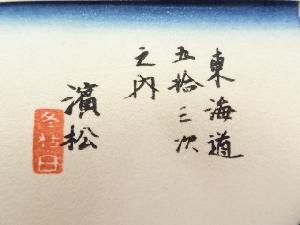 東海道
五拾三次
之内
濱松
冬枯ノ図